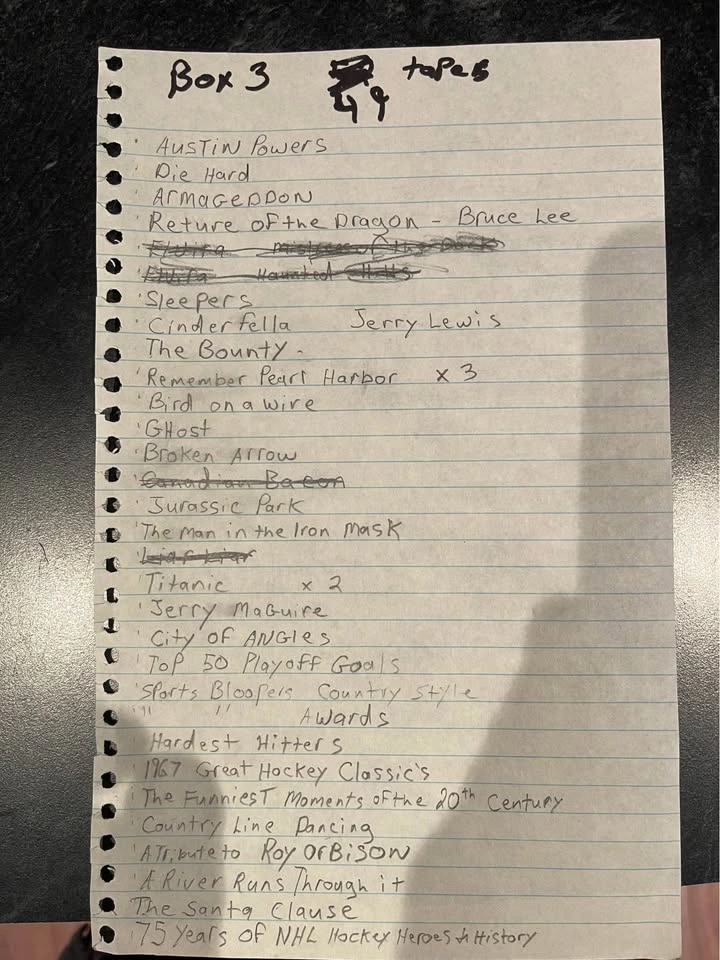 Box 3 49 tapes
Austin Powers
Die Hard
Armageddon
Reture of the Dragon - Bruce Lee
Elvira mistress of the Dark
Elvira Haunted Hills
Sleepers
Cinderfella Jerry Lewis
The Bounty -
Remember Pearl Harbor x 3
Bird on a wire
GHost
Broken Arrow
Canadian Bacon
Jurassic Park
The Man in the Iron Mask
Liar Liar
Titanic x 2
Jerry MaGuire
City of ANGles
Top 50 Playoff Goals
Sports Bloopers Country Style
" " Awards
Hardest Hitters
1967 Great Hockey Classic's
The Funniest Moments of the 20th Century
Country Line Dancing
A Tribute to Roy Orbison
A River Runs Through it
The Santa Clause
75 Years of NHL Hockey Heroes & History